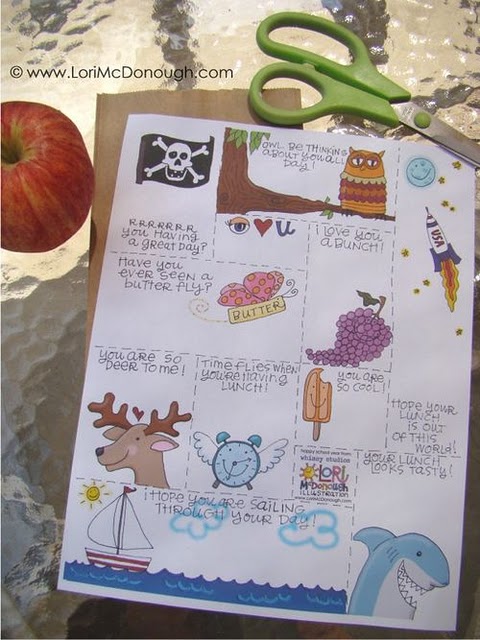 © www.LoriMcDonough.com
OWL BE THINKING
ABOUT YOU ALL
DAY!
RRRRRRR
YOU HAVING
A GREAT DAY?
U
I LOVE YOU
A BUNCH!
USA
HAVE YOU
EVER SEEN A
BUTTER FLY?
BUTTER
YOU ARE SO
DEER TO ME!
TIME FLIES WHEN
YOU'RE HAVING
LUNCH!
YOU ARE
SO COOL!
HOPE YOUR
LUNCH
IS OUT
OF THIS
WORLD!
happy school year from
whimsy studios
LORI
McDONOUGH
ILLUSTRATION
www.LoriMcDonough.com
YOUR LUNCH
LOOKS TASTY!
I HOPE YOU ARE SAILING
THROUGH YOUR DAY!